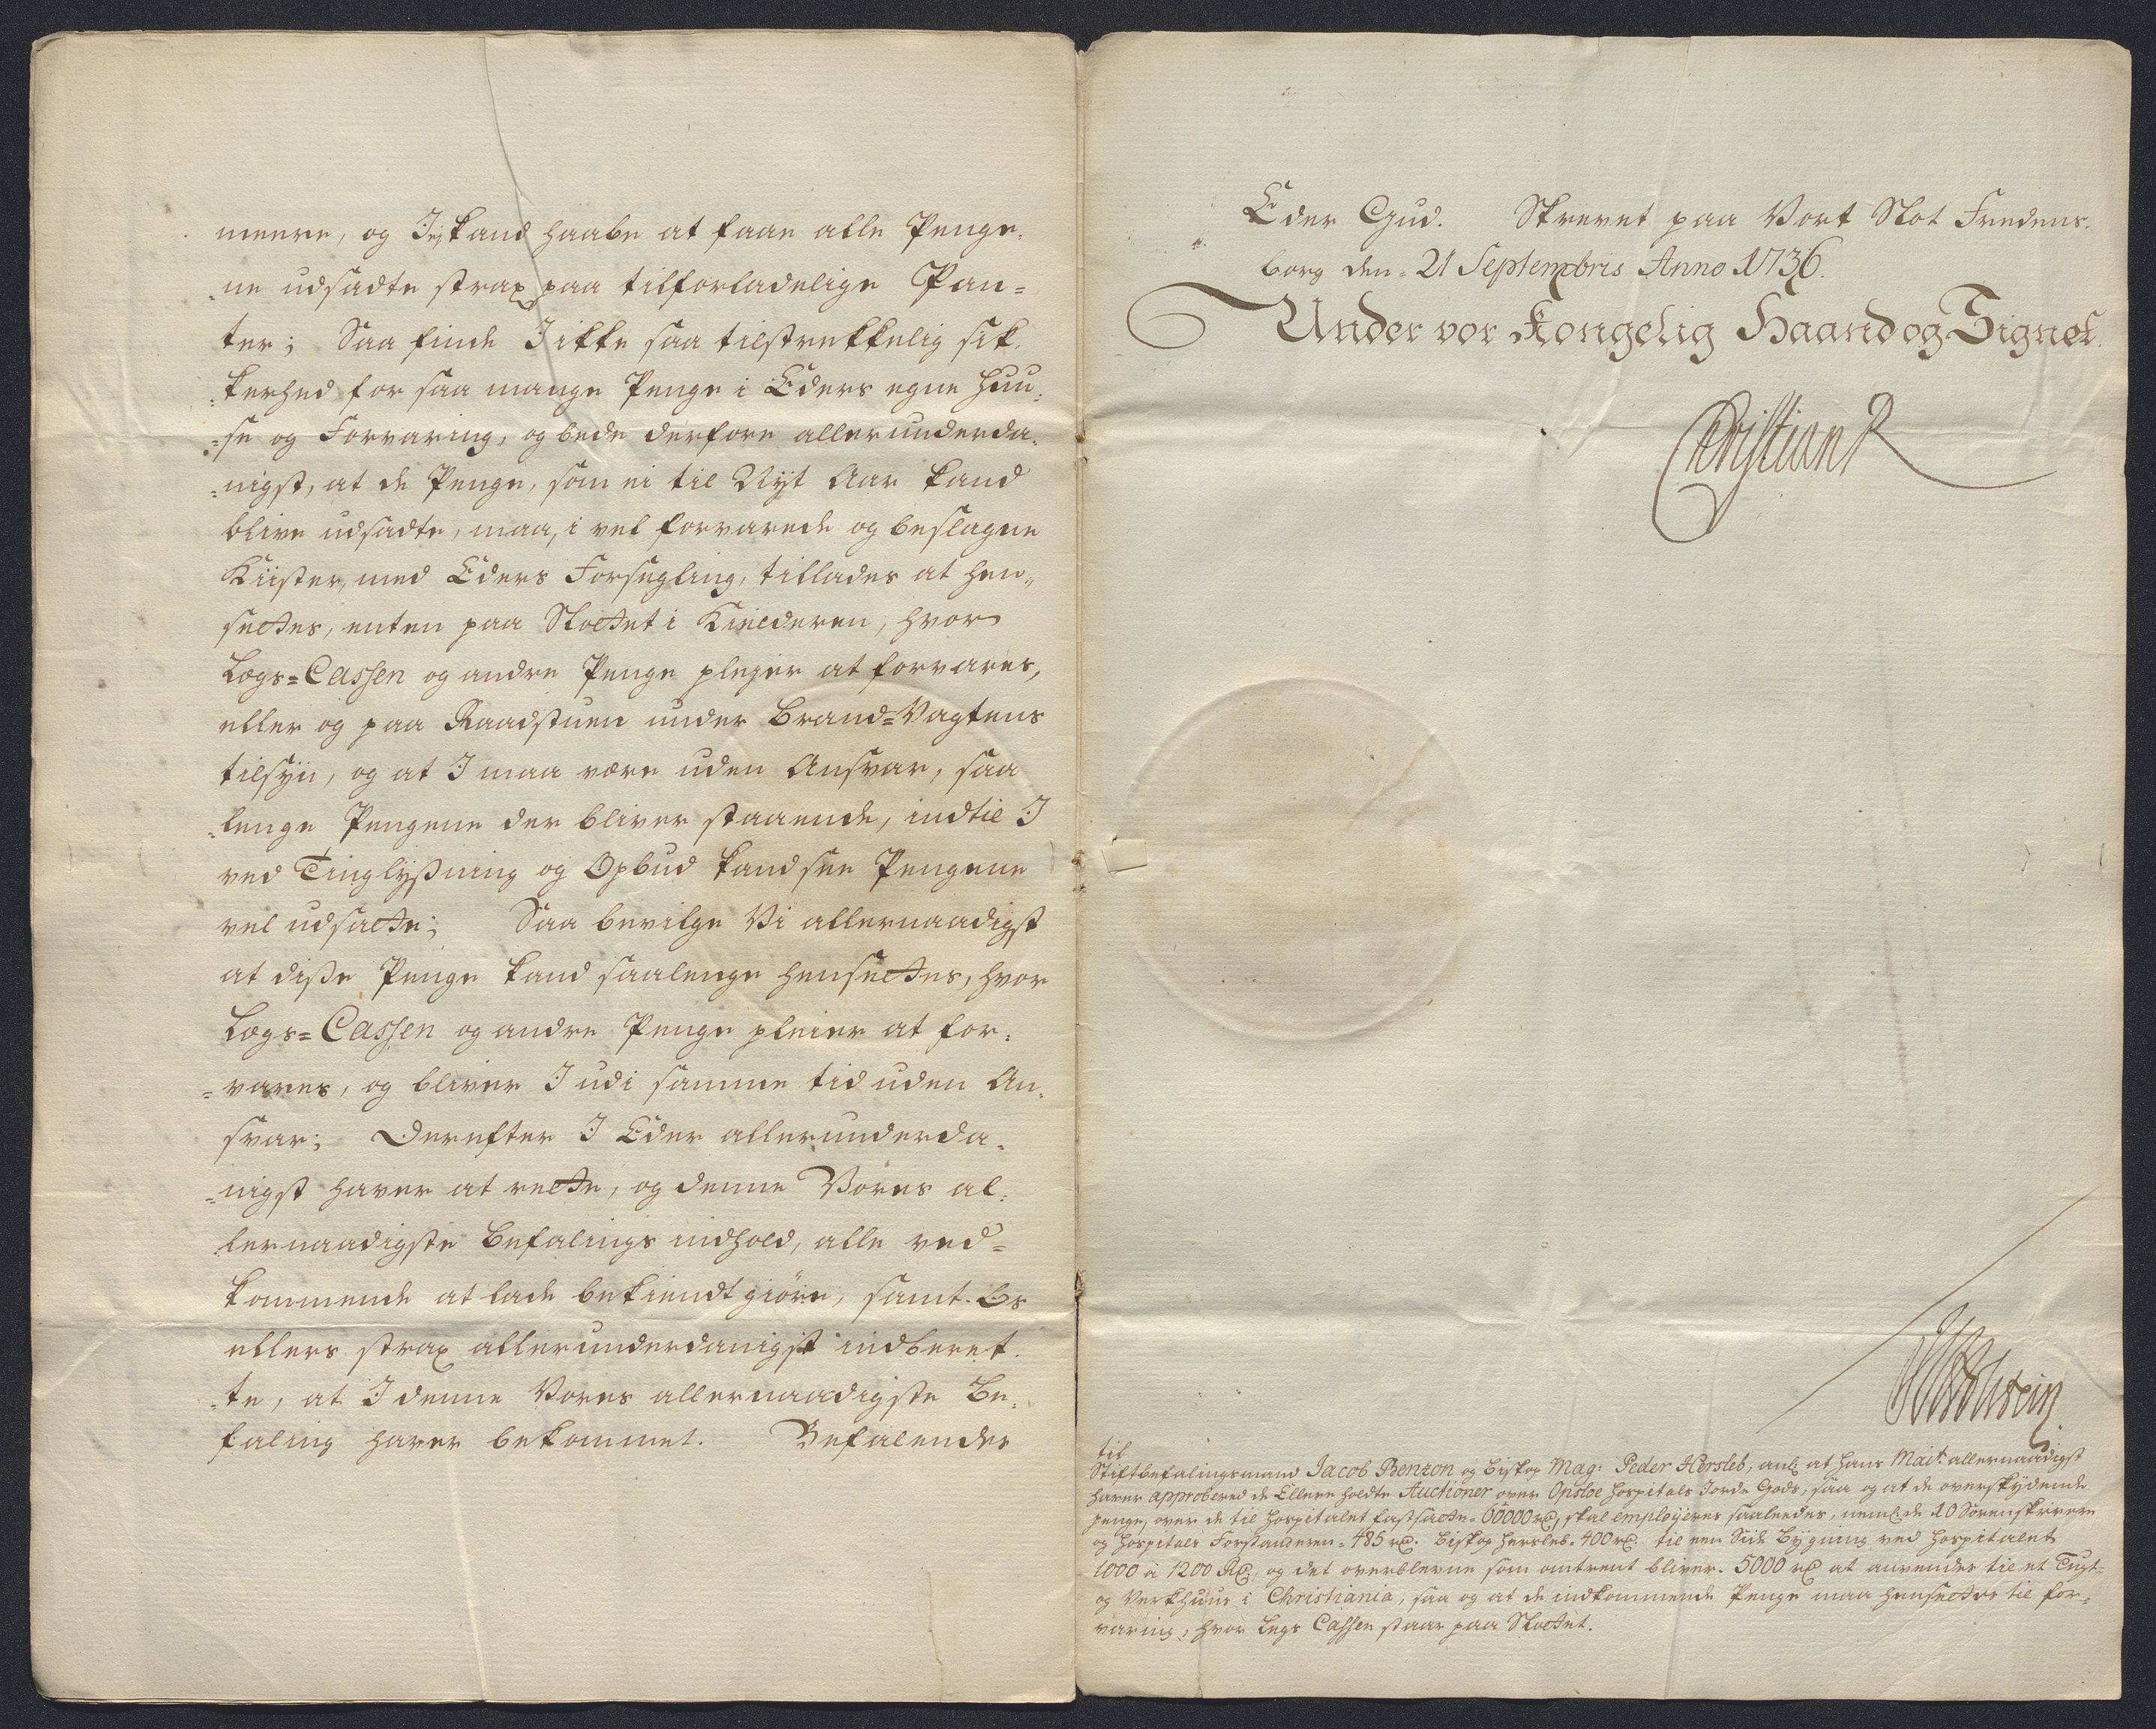 meere, og I ej kand haabe at faae alle Penge-
-ne udsadte strax paa tilforladelige Pan=
ter; Saa finde I ikke saa tilstrekkelig sik-
-kerhed for saa mange Penge i Eders egne Huu-
-se og Forvaring, og bede derfore allerunderda-
-nigst, at de Penge, som ei til Nyt Aar kand
blive udsadte, maa, i vel forvarede og beslagne
Kiister, med Eders Forsegling, tillades at hen-
settes, enten paa Slottet i Kielderen, hvor
Legs=Cassen og andre Penge plejer at forvares,
eller og paa Raadstuen under Brand=Vagtens
tilsyn, og at I maa være uden Ansvar, saa
-lenge Pengene der bliver staaende, indtil I
ved Tinglysning og Opbud kand see Pengene
vel udsatte; Saa bevilge Vi allernaadigst
at disse Penge kand saalenge hensettes, hvor
Legs=Cassen og andre Penge pleier at for-
=vares, og bliver I udi samme tid uden An-
svar; Derefter I Eder allerunderda-
-nigst haver at rette, og denne Vores al-
lernaadigste Befalings indhold, alle ved=
kommende at lade bekiendtgiøre, samt Os
ellers strax allerunderdanigst indberet-
-te, at I denne Vores allernaadigste Be-
faling haver bekommet. Befalendes
Eder Gud. Skrevet paa Vort Slot Fredens-
borg den 21 Septembris Anno 1736.
Under vor Kongelig Haand og Signet.
Christian R
til
Stiftbefalingsmand Jacob Benzon og Biskop Mag: Peder Hersleb, anl: at hans Mait: allernaadigst
haver approbered de Ellere holdte Auctioner over Opsloe Hospitals Jorde Gods, saa og at de overskydende
penge, over de til Hospitalet fastsatte 60000 rd, skal employeres saaleedes, neml: de 10 Sorenskrivere
og Hospitals Forstanderen 485 rd. Biskop Hersleb 400 rd. til een Side Bygning ved Hospitalet
1000 à 1200 Rd, og det overblevne som omtrent bliver 5000 rd at anvendes til et Tugt-
og Verkhuus i Christiania, saa og at de indkommende Penge maa hensettes til for-
varing, hvor Legs Cassen staar paa Slottet.